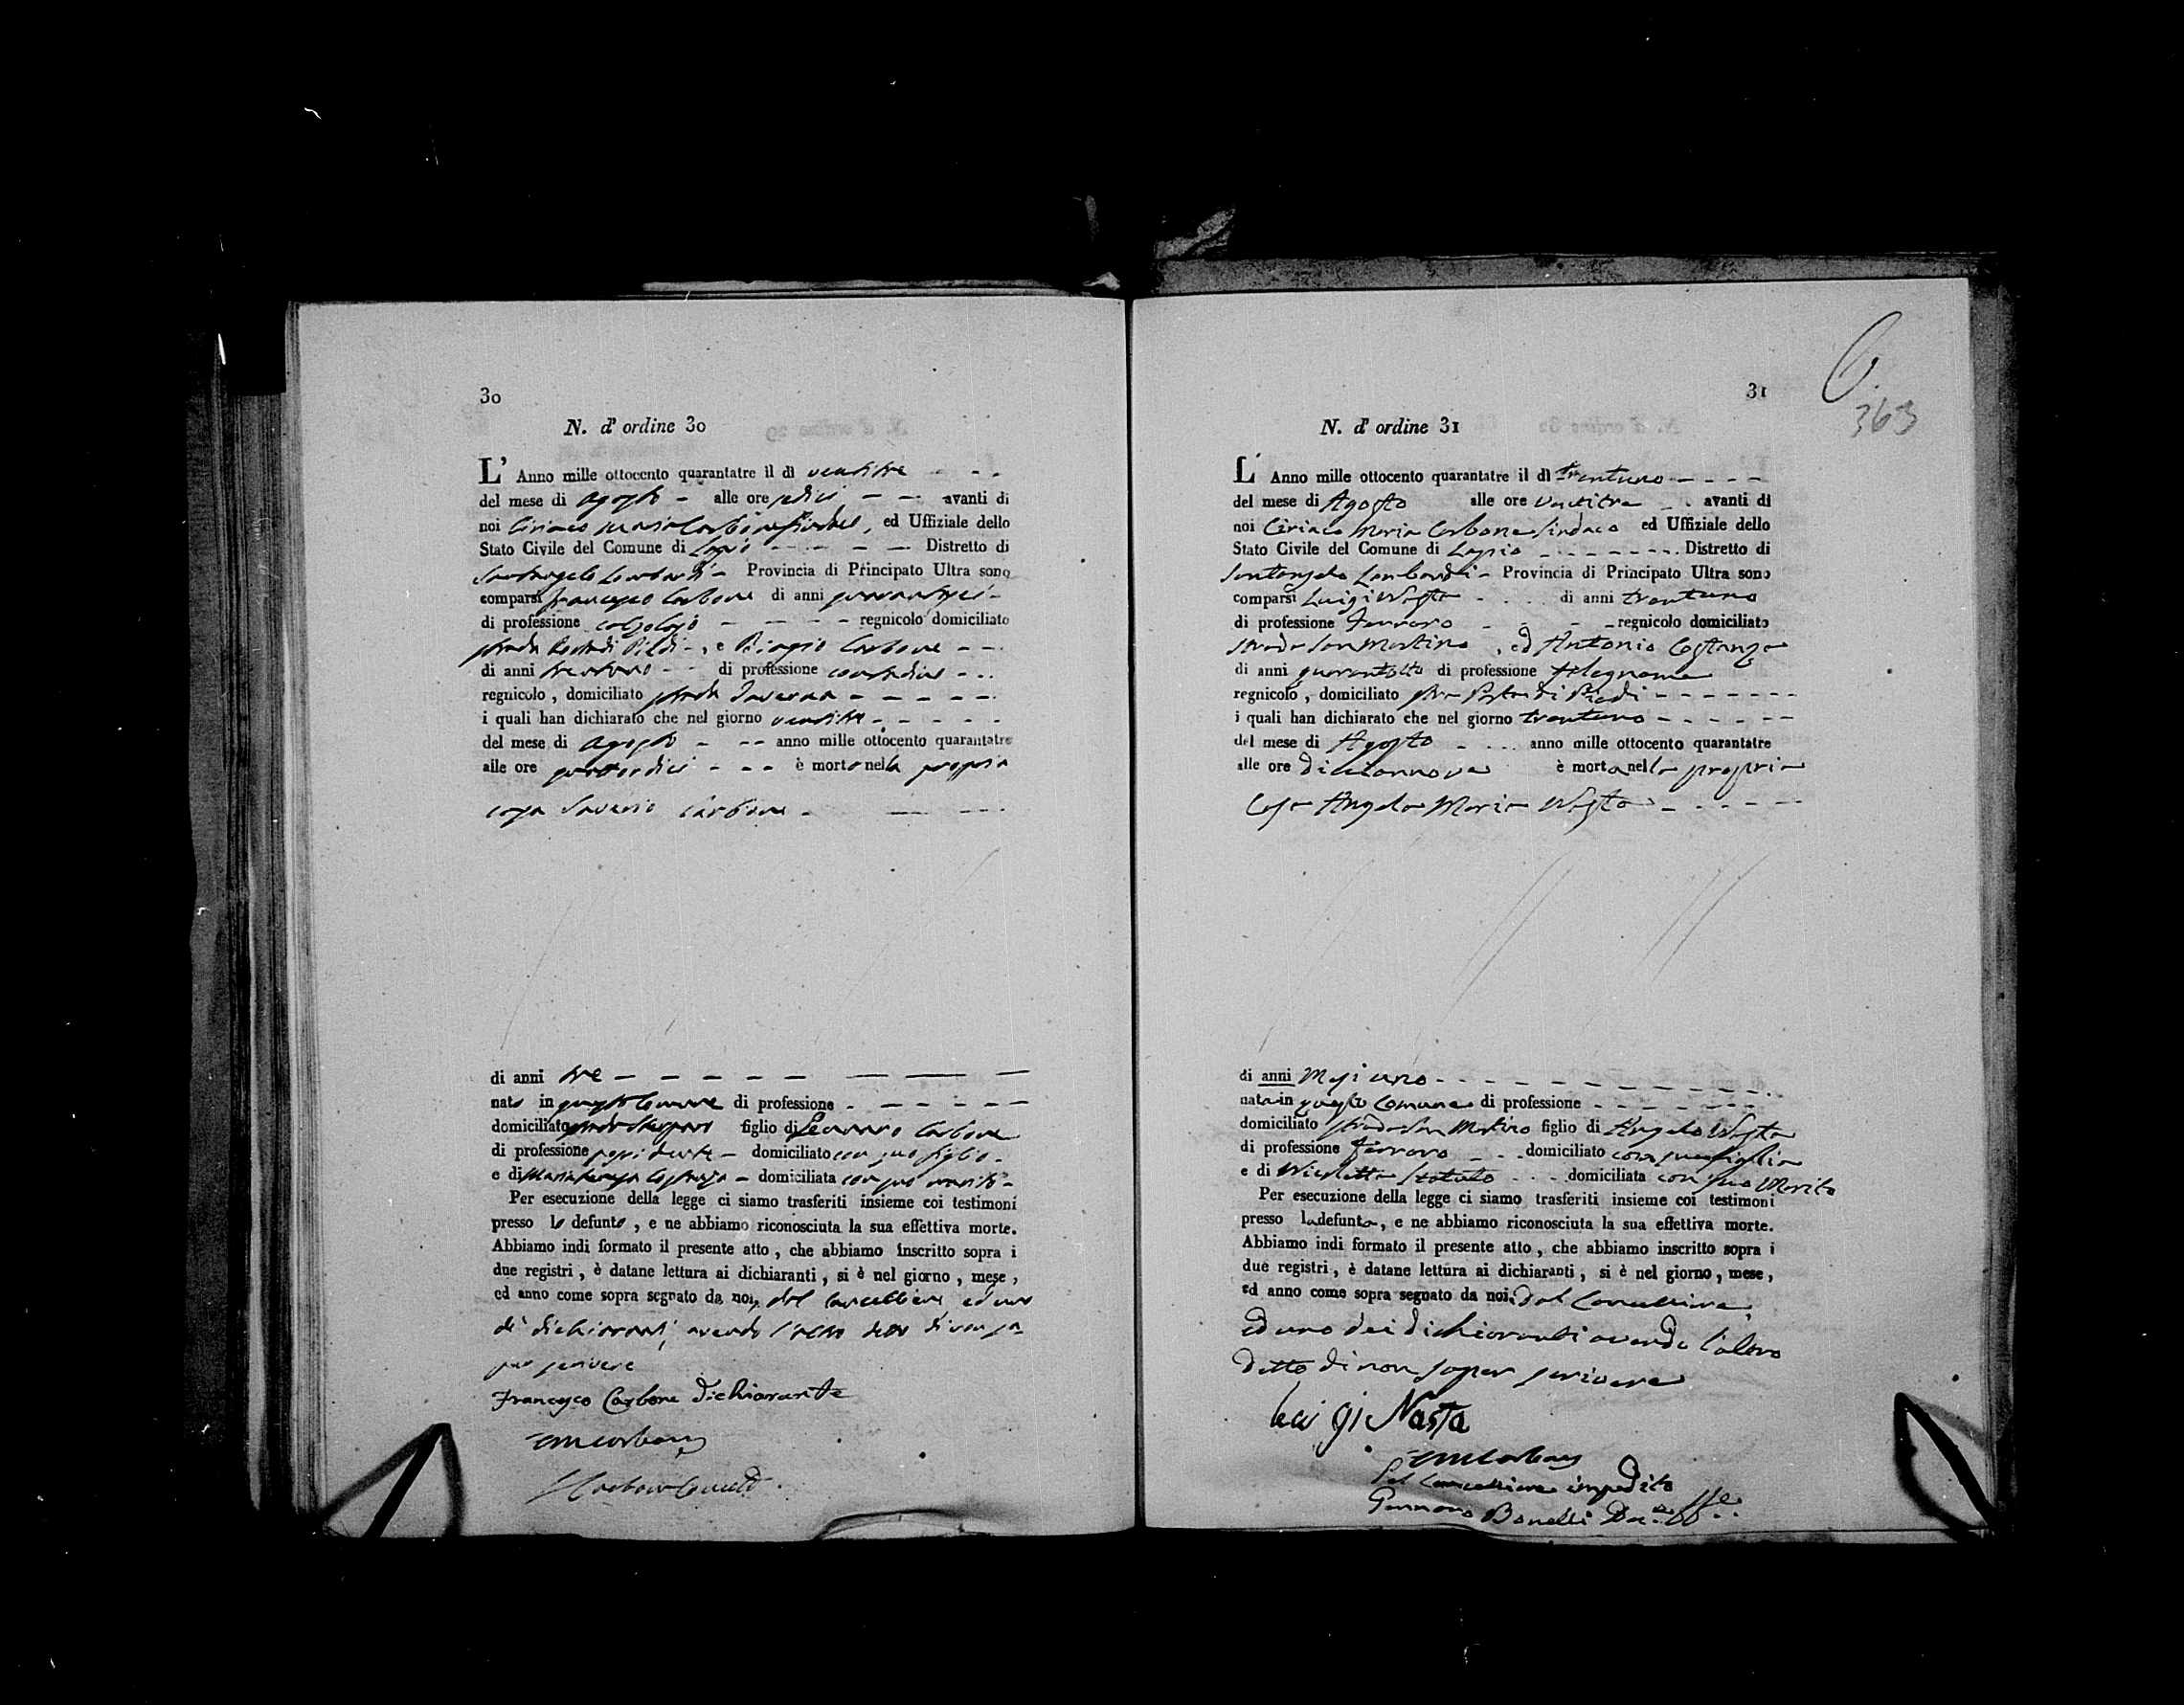 30
N. d' ordine 30
L' Anno mille ottocento quarantatre il dì ventitre
del mese di Agosto alle ore sedici avanti di
noi Ciriaco Maria Carbone Sindaco, ed Uffiziale dello
Stato Civile del Comune di Lapio Distretto di
Santangelo Lombardi Provincia di Principato Ultra sono
comparsi Francesco Carbone di anni
di professione calzolajo regnicolo domiciliato
strada Porta di Piedi, e Biagio Carbone
di anni trentuno di professione contadino
regnicolo, domiciliato strada Taverna
i quali han dichiarato che nel giorno ventitre
del mese di Agosto anno mille ottocento quarantatre
alle ore quattordici è morto nella propria
casa Saverio Carbone
di anni tre
nato in questo Comune di professione
domiciliato strada figlio di Gennaro Carbone
di professione possidente domiciliato con suo figlio
e di Mariateresa Costanza domiciliata con suo marito
Per esecuzione della legge ci siamo trasferiti insieme coi testimoni
presso lo defunto, e ne abbiamo riconosciuta la sua effettiva morte.
Abbiamo indi formato il presente atto, che abbiamo inscritto sopra i
due registri, è datane lettura ai dichiaranti, si è nel giorno, mese,
ed anno come sopra segnato da noi, dal Cancelliere, ed uno
di dichiaranti, avendo l'altro detto di non sa
per scrivere
Francesco Carbone dichiarante
CMCarbone
31
363
N. d' ordine 31
L' Anno mille ottocento quarantatre il dì trentuno
del mese di Agosto alle ore ventitre avanti di
noi Ciriaco Maria Carbone Sindaco ed Uffiziale dello
Stato Civile del Comune di Lapio Distretto di
Santangelo Lombardi Provincia di Principato Ultra sono
comparsi Luigi Nasta di anni trentuno
di professione Ferraro regnicolo domiciliato
strada San Martino, ed Antonio Costanza
di anni quarantotto di professione Falegname
regnicolo, domiciliato stra Porta di Piedi
i quali han dichiarato che nel giorno trentuno
del mese di Agosto anno mille ottocento quarantatre
alle ore diciannove è morta nella propria
Casa Angela Maria Nasta
di anni Mesi uno
nata in questo Comune di professione
domiciliato strada San Martino figlio di Angelo Nasta
di professione Ferraro domiciliato con sua figlia
e di Nicoletta domiciliata con suo Marito
Per esecuzione della legge ci siamo trasferiti insieme coi testimoni
presso la defunta, e ne abbiamo riconosciuta la sua effettiva morte.
Abbiamo indi formato il presente atto, che abbiamo inscritto sopra i
due registri, è datane lettura ai dichiaranti, si è nel giorno, mese,
ed anno come sopra segnato da noi, dal Cancelliere,
ed uno dei dichiaranti avendo l'altro
detto di non saper scrivere
Luigi Nasta
CMCarbone
Pel Cancelliere impedito
Gennaro Bonelli